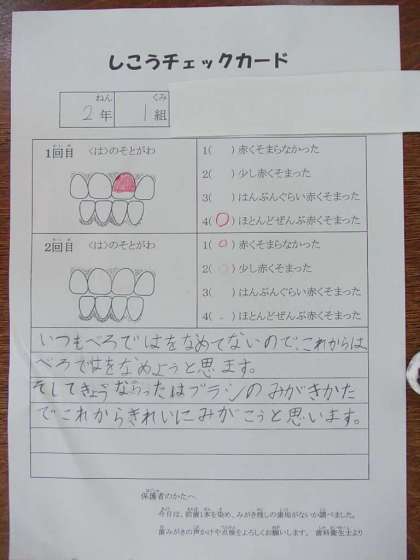 しこうチェックカード
2年 1組
1回目 〈は〉のそとがわ
1( )赤くそまらなかった
2( )少し赤くそまった
3( )はんぶんぐらい赤くそまった
4(○)ほとんどぜんぶ赤くそまった
2回目 〈は〉のそとがわ
1(○)赤くそまらなかった
2( )少し赤くそまった
3( )はんぶんぐらい赤くそまった
4( )ほとんどぜんぶ赤くそまった
いつもべろではをなめてないので、これからは
べろではをなめようと思ます。
そしてきょうならったはブラシのみがきかた
でこれからきれいにみがこうと思います。
保護者のかたへ
今日は、前歯1本を染め、みがき残しの歯垢がないか調べました。
歯みがきの声かけや点検をよろしくお願いします。 歯科衛生士より